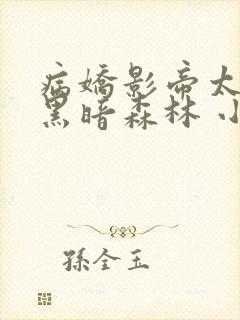 病嬌影帝太
黑暗森林 小
孫全玉